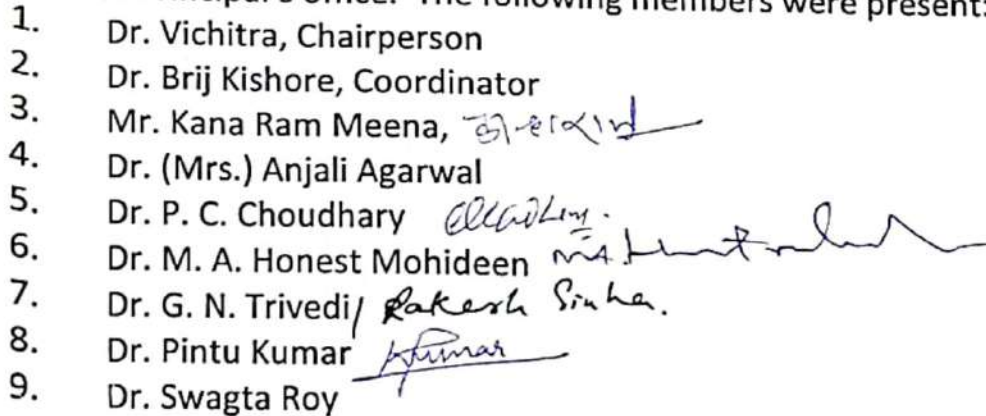 Principal's office. The following members were present:
1. Dr. Vichitra, Chairperson
2. Dr. Brij Kishore, Coordinator
3. Mr. Kana Ram Meena,
4. Dr. (Mrs.) Anjali Agarwal
5. Dr. P. C. Choudhary
6. Dr. M. A. Honest Mohideen
7. Dr. G. N. Trivedi/ Rakesh Sinha.
8. Dr. Pintu Kumar Kumar
9. Dr. Swagta Roy